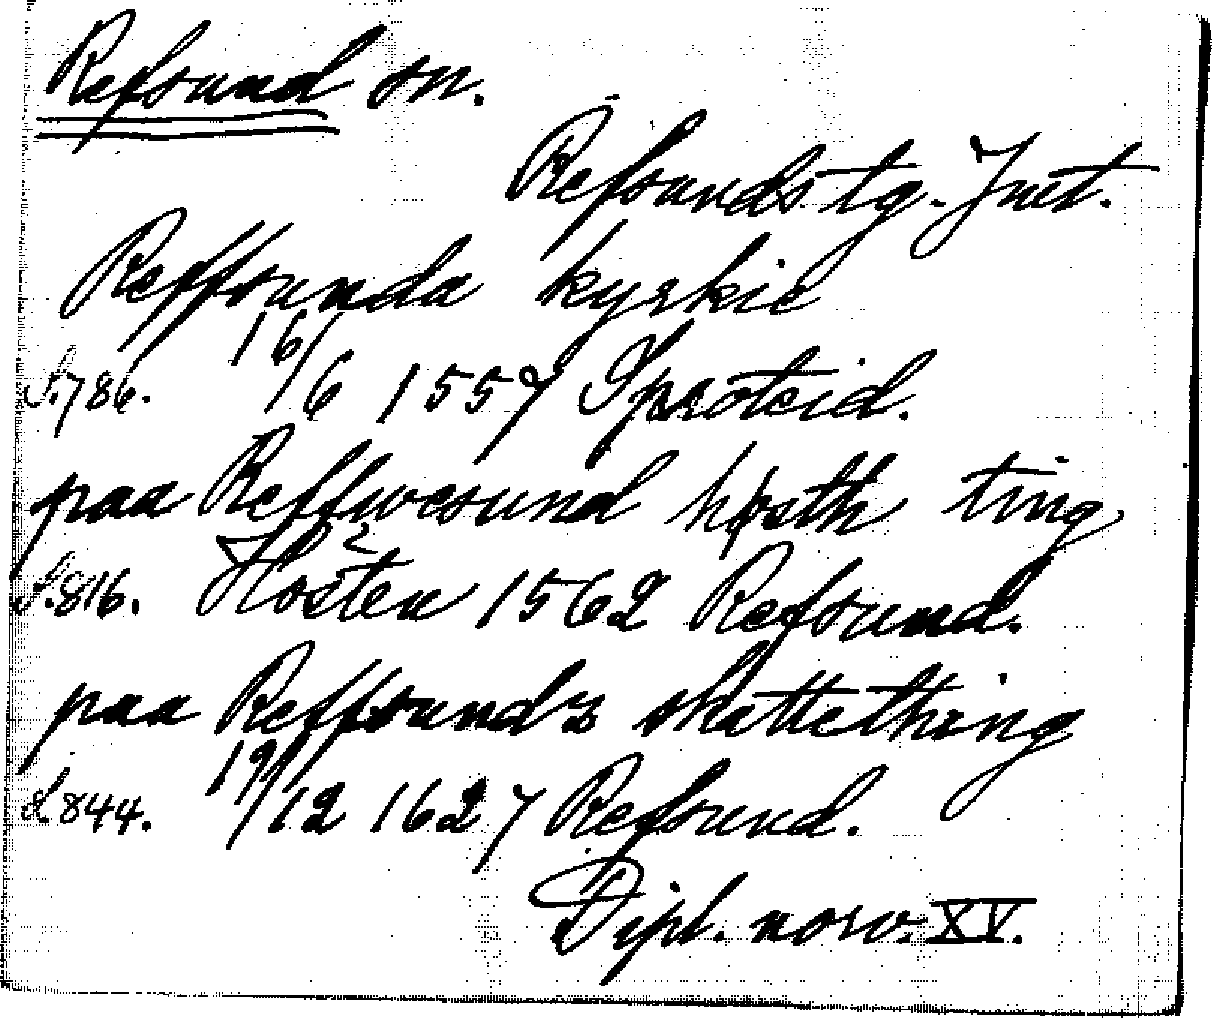 Refsund sn.
Refsunds tg. Jmt.
Reffsunda kyrkie
S.786. 16/6 1557 Sproteid.
paa Reffwesund høsth ting
S.816. Hösten 1562 Refsund.
paa Reffsundz skattething
S.844. 19/12 1627 Refsund.
Dipl. norv. XV.